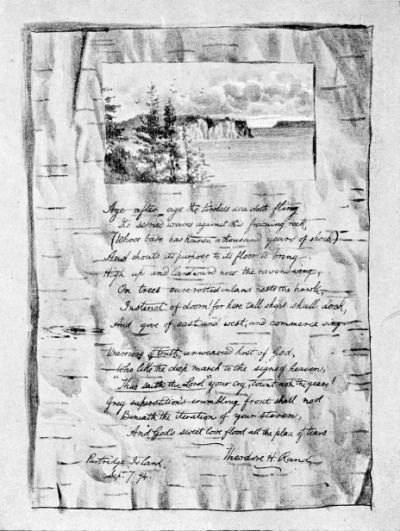 Age after age the tireless sea doth fling
Its serried waves against this frowning rock,
(Whose base has known a thousand years of shock)
And shouts its purpose to its floor to bring.
High up and landward now the ravens wing,
On trees sure rooted inland rests the hawk,
Instinct of doom! for here tall ships shall dock,
And give of east and west, and commerce sing.
Warriors of Trust, unwearied host of God,
Who like the deep march to the signs of heaven,
"Thus saith the Lord" your cry, count not the years!
Grey superstition's crumbling front shall nod
Beneath the iteration of your
And God's sweet love flood all the place of tears
Partridge Island,
Sep. 7. 94.
Theodore H. Rand